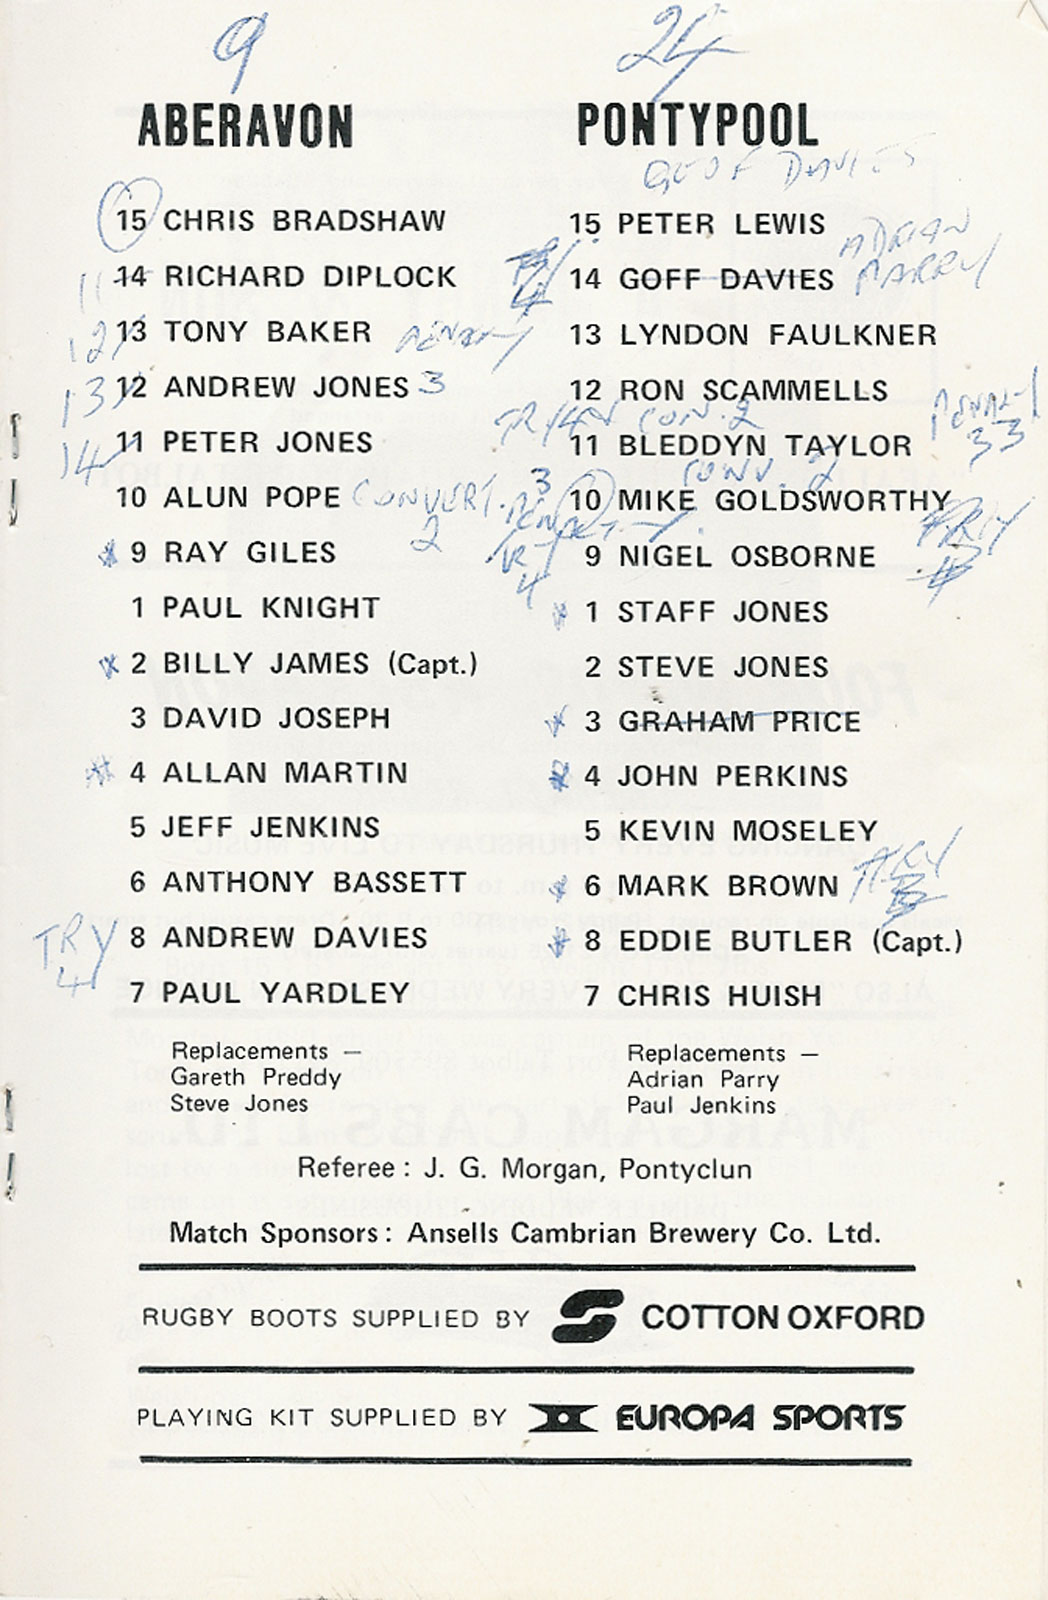 9 24
ABERAVON PONTYPOOL
GEOF DAVIES
15 CHRIS BRADSHAW 15 PETER LEWIS
ADRIAN
11 14 RICHARD DIPLOCK 4 14 GOFF DAVIES PARRY
12 13 TONY BAKER PENALTY 13 LYNDON FAULKNER
13 12 ANDREW JONES 3 12 RON SCAMMELLS PENALTY
TRY 4 CON. 2 33
14 11 PETER JONES 11 BLEDDYN TAYLOR
CONV. 2
10 ALUN POPE CONVERT. 2 3 PENALTY 10 MIKE GOLDSWORTHY
9 RAY GILES TRY 4 9 NIGEL OSBORNE TRY
1 PAUL KNIGHT 1 STAFF JONES
2 BILLY JAMES (Capt.) 2 STEVE JONES
3 DAVID JOSEPH 3 GRAHAM PRICE
4 ALLAN MARTIN 4 JOHN PERKINS
5 JEFF JENKINS 5 KEVIN MOSELEY
6 ANTHONY BASSETT 6 MARK BROWN TRY
TRY 4 8 ANDREW DAVIES 8 EDDIE BUTLER (Capt.)
7 PAUL YARDLEY 7 CHRIS HUISH
Replacements — Replacements —
Gareth Preddy Adrian Parry
Steve Jones Paul Jenkins
Referee : J. G. Morgan, Pontyclun
Match Sponsors : Ansells Cambrian Brewery Co. Ltd.
RUGBY BOOTS SUPPLIED BY COTTON OXFORD
PLAYING KIT SUPPLIED BY EUROPA SPORTS